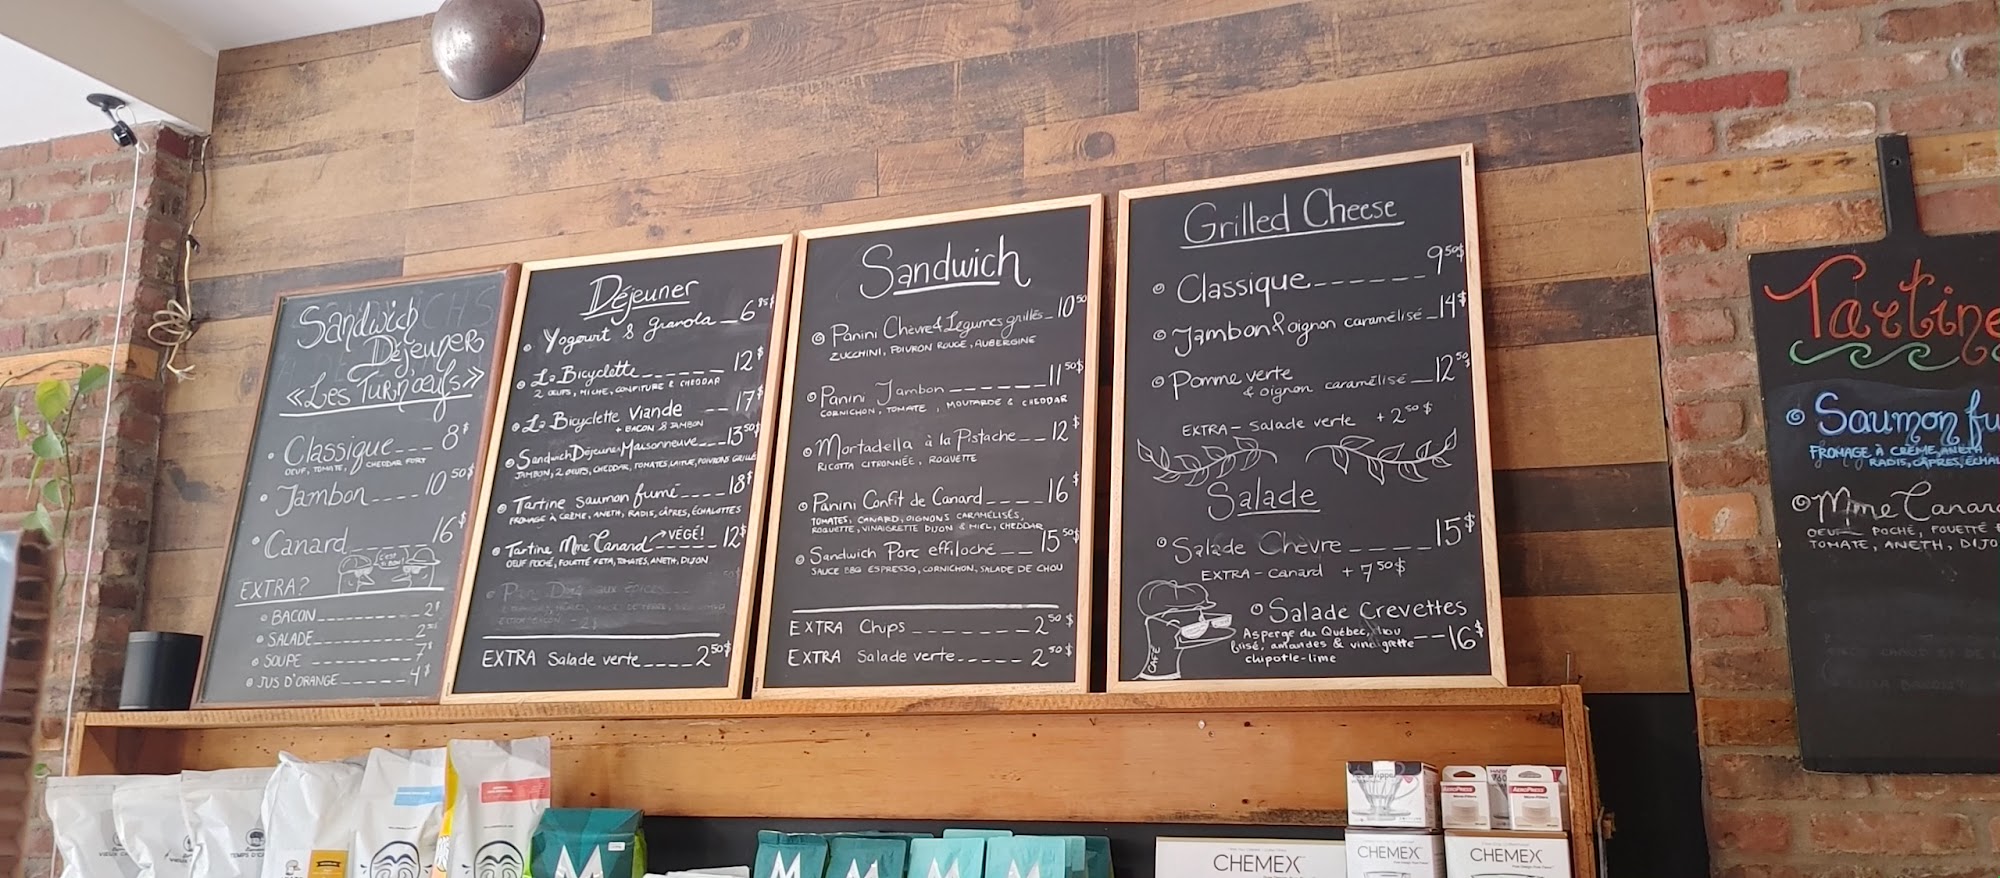 Sandwich
Déjeuner
«Les Turn'œufs»
Classique --- 8$
OEUF, TOMATE, CHEDDAR FORT
Jambon ---- 10 50$
Canard 16$
C'EST SI BON!
EXTRA?
BACON 2$
SALADE 2
SOUPE 7$
JUS D'ORANGE 4$
Déjeuner
Yogourt & granola 6 95$
La Bicyclette 12$
2 OEUFS, MICHE, CONFITURE & CHEDDAR
La Bicyclette Viande -- 17$
+ BACON & JAMBON
Sandwich Déjeuner Maisonneuve --- 13 50$
JAMBON, 2 OEUFS, CHEDDAR, TOMATES, LAITUE, POIVRONS GRILLÉS
Tartine saumon fumé ---- 18$
FROMAGE À CRÈME, ANETH, RADIS, CÂPRES, ÉCHALOTTES
Tartine Mme Canard → VÉGÉ! 12$
OEUF POCHÉ, FOUETTÉ FETA, TOMATES, ANETH, DIJON
EXTRA Salade verte ---- 2 50$
Sandwich
Panini Chèvre & Légumes grillés - 10 50
ZUCCHINI, POIVRON ROUGE, AUBERGINE
Panini Jambon ------ 11 50$
CORNICHON, TOMATE, MOUTARDE & CHEDDAR
Mortadella à la Pistache -- 12$
RICOTTA CITRONNÉE, ROQUETTE
Panini Confit de Canard ---- 16$
TOMATES, CANARD, OIGNONS CARAMÉLISÉS,
ROQUETTE, VINAIGRETTE DIJON & MIEL, CHEDDAR
Sandwich Porc effiloché --- 15 50$
SAUCE BBQ ESPRESSO, CORNICHON, SALADE DE CHOU
EXTRA Chips ------- 2 50$
EXTRA Salade verte ----- 2 50$
Grilled Cheese
Classique ------ 9 50$
Jambon & oignon caramélisé - 14$
Pomme verte
& oignon caramélisé -- 12 50
EXTRA - Salade verte + 2 50$
Salade
Salade Chèvre ---- 15$
EXTRA - Canard + 7 50$
Salade Crevettes
Asperge du Québec,
vinaigrette -- 16$
chipotle-lime
CAFÉ
Tartine
Saumon fu
FROMAGE À CRÈME, ANETH
RADIS, CÂPRES, ÉCHAL
Mme Canard
OEUF POCHÉ, FOUETTÉ
TOMATE, ANETH, DIJO
TEMPS D'
M
M
M
M
M
CHEMEX
CHEMEX
CHEMEX
AEROPRESS
AEROPRESS